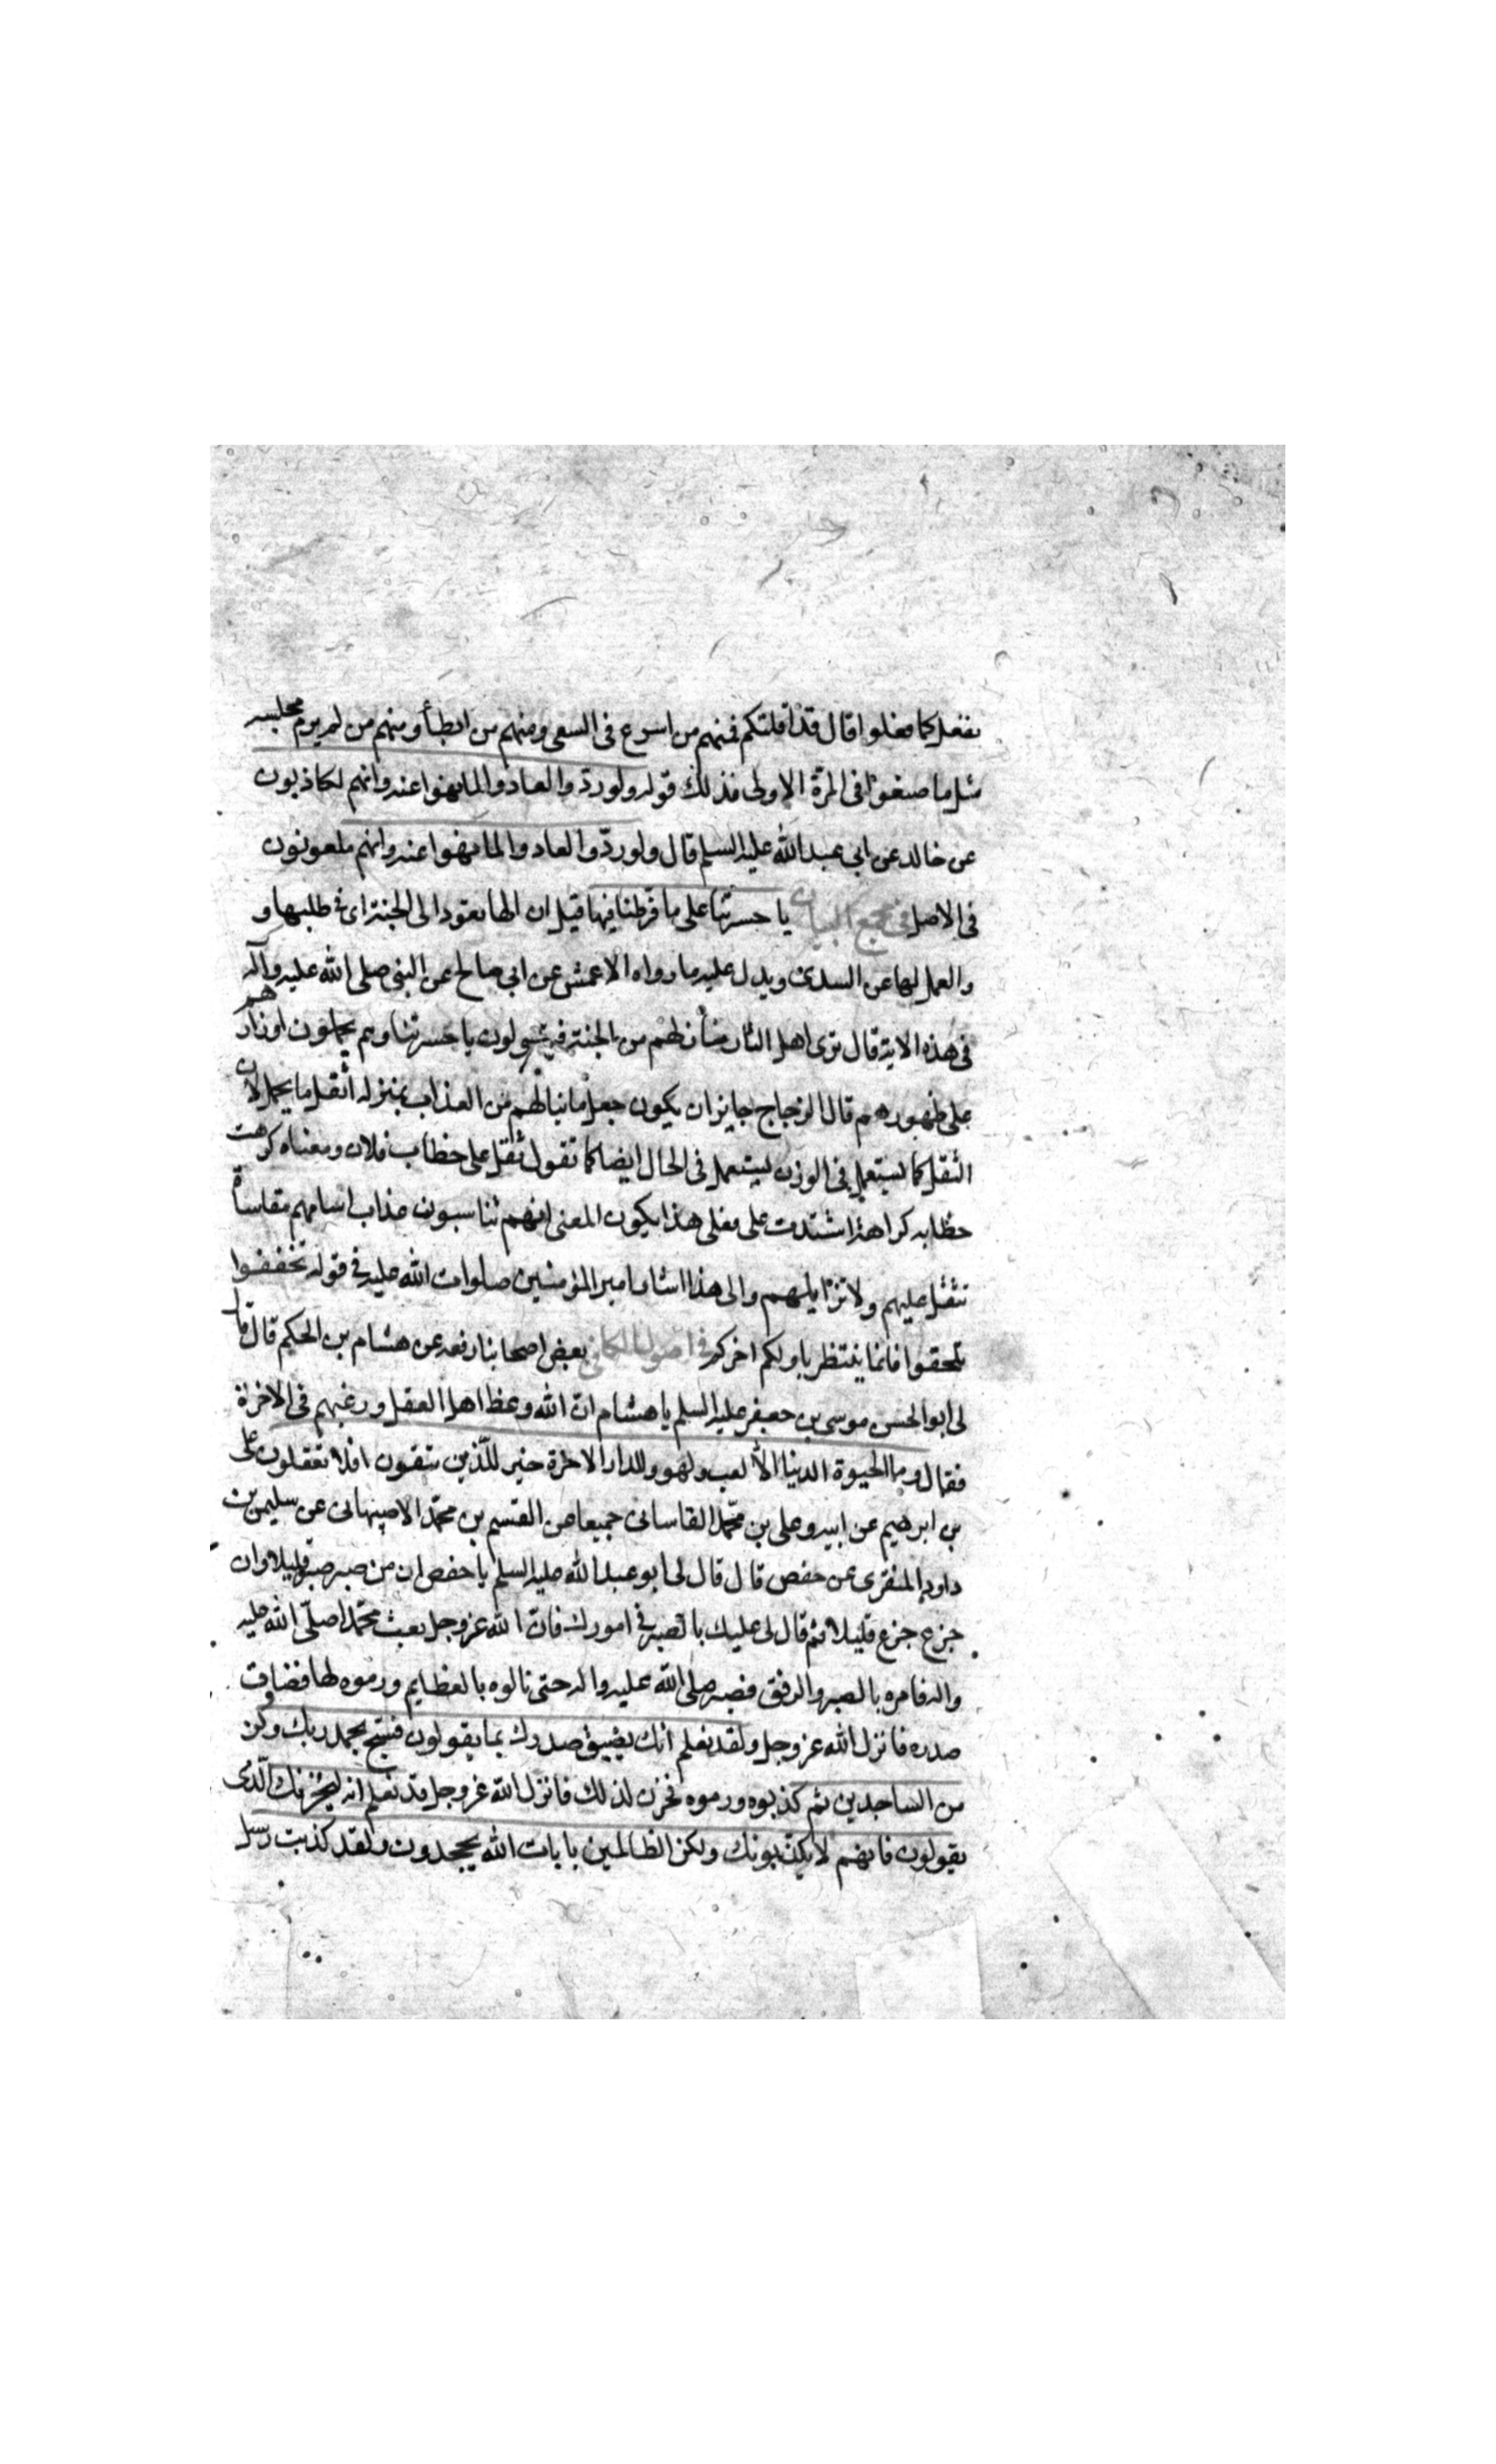 نفعل كما فعلوا قال قد اقلتكم فمنهم من اسرع فى السعى ومنهم من ابطأ ومنهم من لم يرم مجلسه
مثل ما صنعوا فى المرة الاولى فذلك قوله ولو ردّوا لعادوا لما نهوا عنه وانهم لكاذبون
عن خالد عن ابى عبد الله عليه السلم قال ولو ردّوا لعادوا لما نهوا عنه وانهم ملعونون
فى الاصل فى مجمع البيان يا حسرتنا على ما فرّطنا فيها قيل ان الها يعود الى الجنة اى فى طلبها و
والعمل لها عن السدى ويدل عليه ما رواه الاعمش عن ابى صالح عن النبى صلى الله عليه وآله
فى هذه الاية قال ترى اهل النار منازلهم من الجنة فيقولون يا حسرتنا وهم يحملون اوزارهم
على ظهورهم قال الزجاج جايز ان يكون جعل ما ينالهم من العذاب بمنزله اثقل ما يحمل لان
الثقل كما يستعمل فى الوزن يستعمل فى الحال ايضا كما تقول ثقل على خطاب فلان ومعناه كرهت
خطابه كراهة اشتدت على فعلى هذا يكون المعنى انهم مقاساة
تثقل عليهم ولا تزايلهم والى هذا اشار امير المؤمنين صلوات الله عليه فى قوله تخففوا
تلحقوا فانما ينتظر باولكم اخركم فى اصول الكافى بعض اصحابنا رفعه عن هشام بن الحكيم قال قال
لى ابو الحسن موسى بن جعفر عليه السلم يا هشام ان الله وعظ اهل العقل ورغبهم فى الاخرة
فقال وما الحيوة الدنيا الّا لعب ولهو وللدار الاخرة خير للّذين يتقون افلا تعقلون على
بن ابرهيم عن ابيه وعلى بن محمّد القاسانى جميعا عن القسم بن محمّد الاصبهانى عن سليمن بن
داود المنقرى عن حفص قال قال لى ابو عبد الله عليه السلم يا حفص ان من صبر صبر قليلا وان
جزع جزع قليلا ثم قال لى عليك بالصبر فى امورك فان الله عز وجل بعث محمّدا صلّى الله عليه
واله فامره بالصبر والرفق فصبر صلى الله عليه واله حتى نالوه بالعظايم ورموه لها فضاق
صدره فانزل الله عز وجل ولقد نعلم انك يضيق صدرك بما يقولون فسبّح بحمد ربك وكن
من الساجدين ثم كذبوه ورموه فحزن لذلك فانزل الله عز وجل قد نعلم انه ليحزنك الّذى
يقولون فانهم لا يكذّبونك ولكن الظالمين بايات الله يجحدون ولقد كذبت رسل